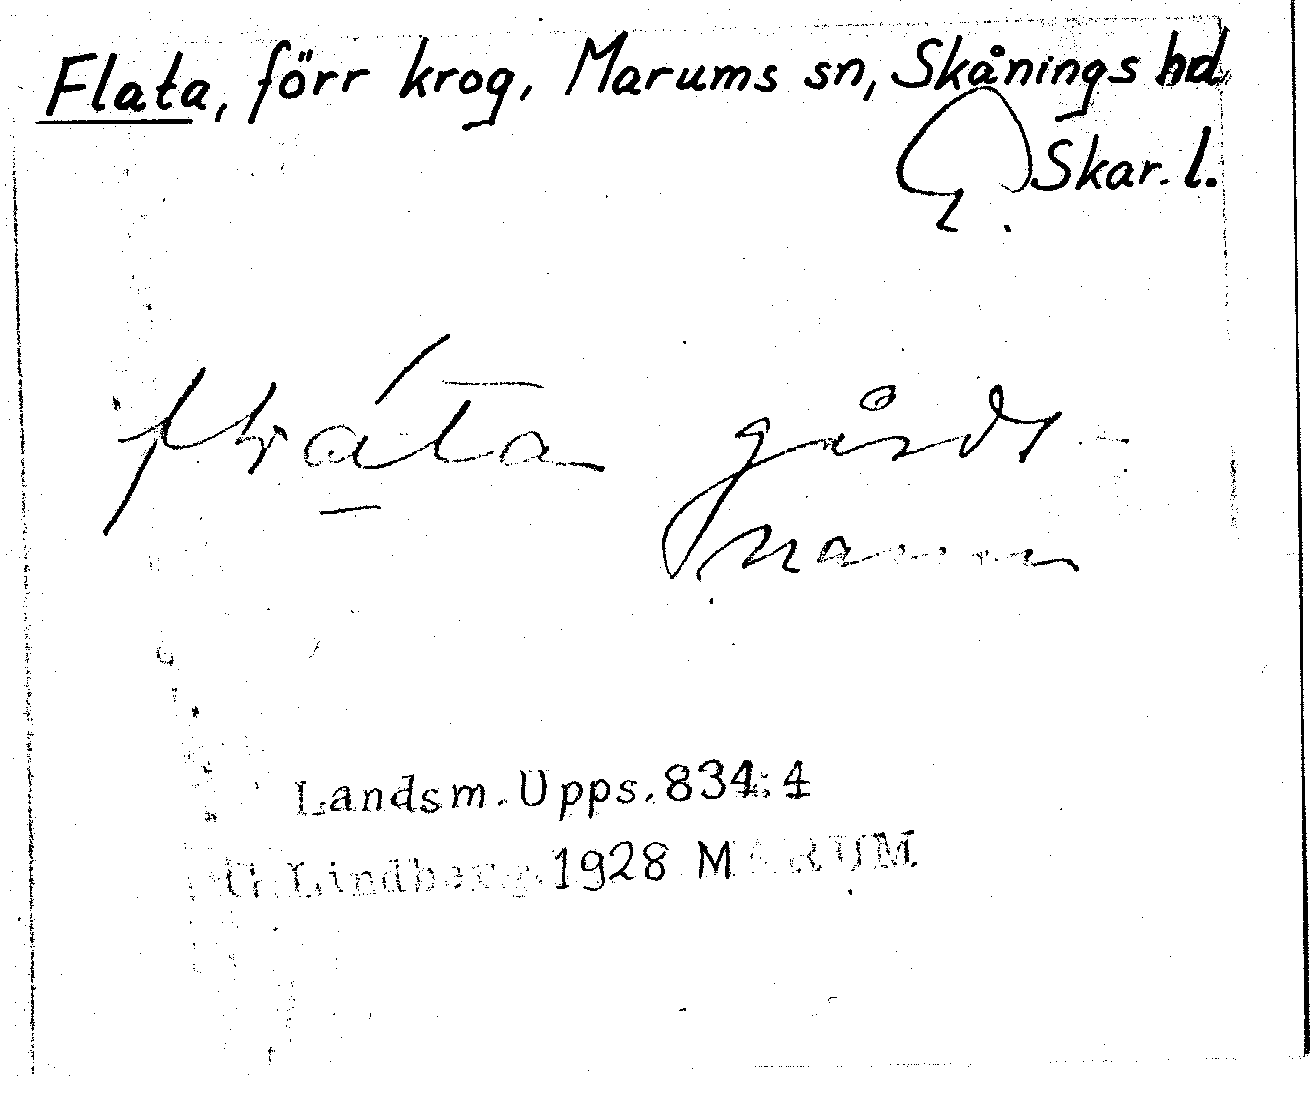 Flata, förr krog, Marums sn, Skånings hd
Skar. l.
gårds-
namn
Landsm. Upps. 834:4
Lindberg. 1928 MARUM